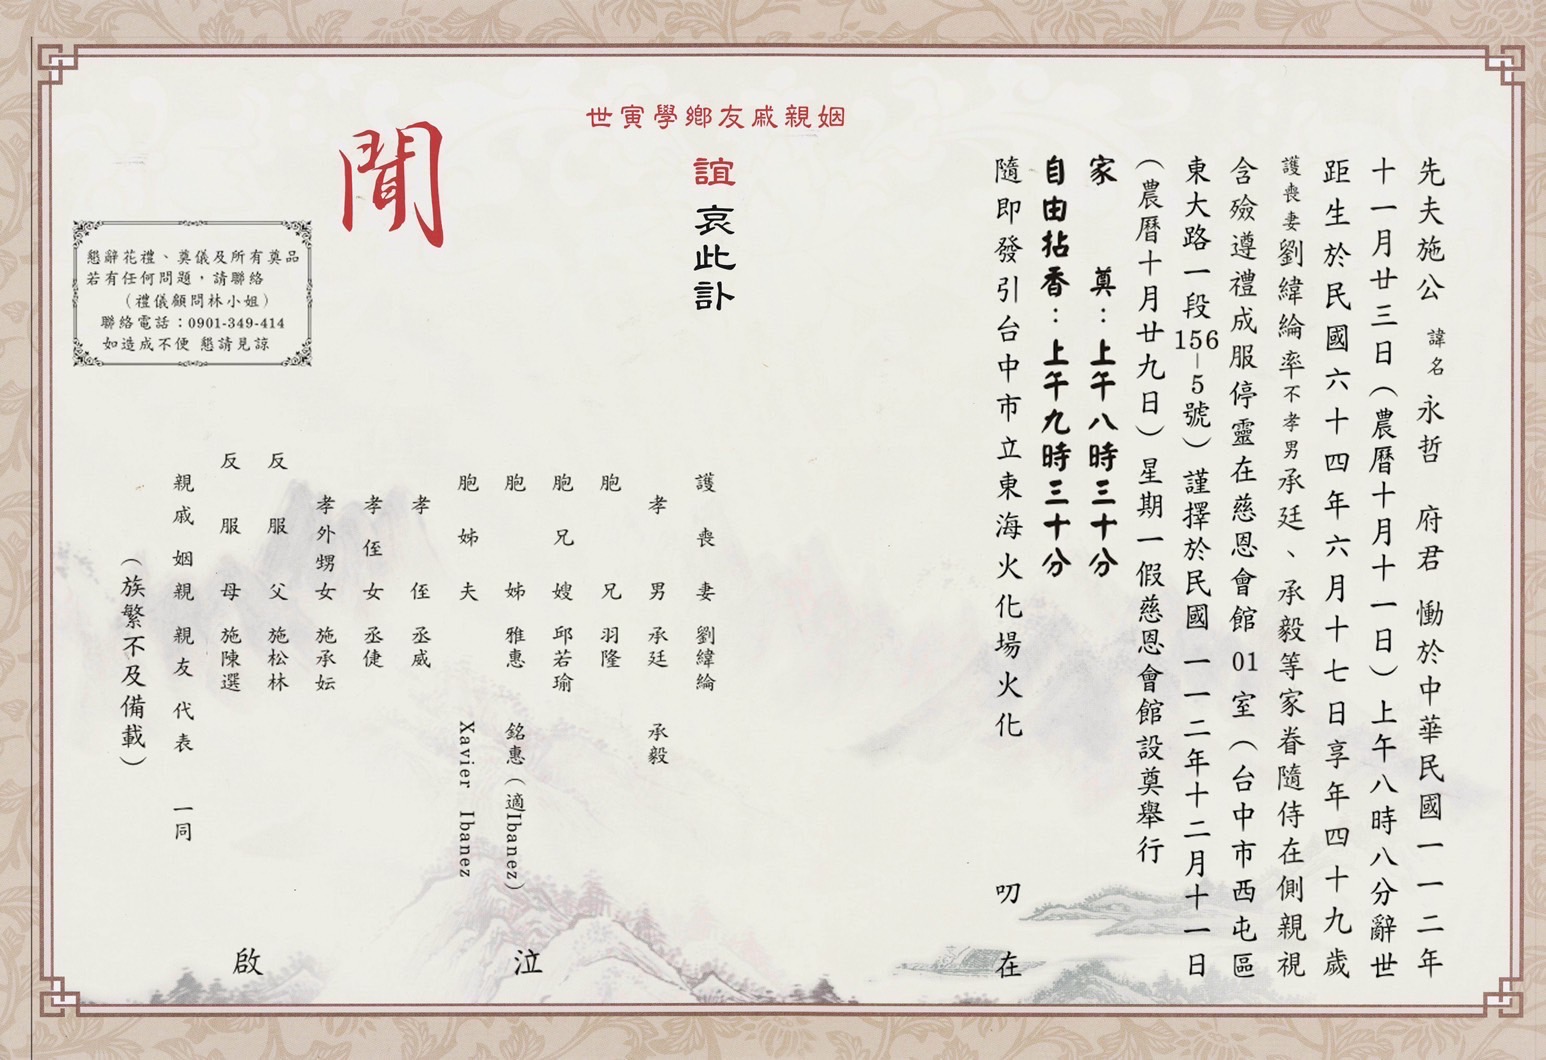 先夫施公 諱名 永哲 府君 慟於中華民國一一二年
十一月廿三日（農曆十月十一日）上午八時八分辭世
距生於民國六十四年六月十七日享年四十九歲
護喪妻劉緯綸率不孝男承廷、承毅等家眷隨侍在側親視
含殮遵禮成服停靈在慈恩會館 01 室（台中市西屯區
東大路一段156-5號）謹擇於民國一一二年十二月十一日
（農曆十月廿九日）星期一假慈恩會館設奠舉行
家 奠：上午八時三十分
自由拈香：上午九時三十分
隨即發引台中市立東海火化場火化 叨在
姻親戚友鄉學寅世
誼哀此訃
聞
護喪妻 劉緯綸
孝男 承廷 承毅
胞兄 羽隆
胞兄嫂 邱若瑜
胞姊 雅惠 銘惠（適Ibanez）
胞姊夫 Xavier Ibanez
泣
孝侄 丞威
孝侄女 丞倢
孝外甥女 施承妘
反服父 施松林
反服母 施陳選
親戚姻親 親友代表 一同
啟
（族繁不及備載）
懇辭花禮、奠儀及所有奠品
若有任何問題，請聯絡
（禮儀顧問林小姐）
聯絡電話：0901-349-414
如造成不便 懇請見諒